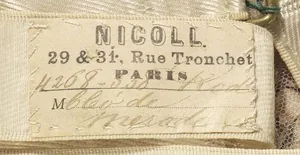 NICOLL
29 & 31, Rue Tronchet
PARIS
4268-536
M Cléo de
Merode